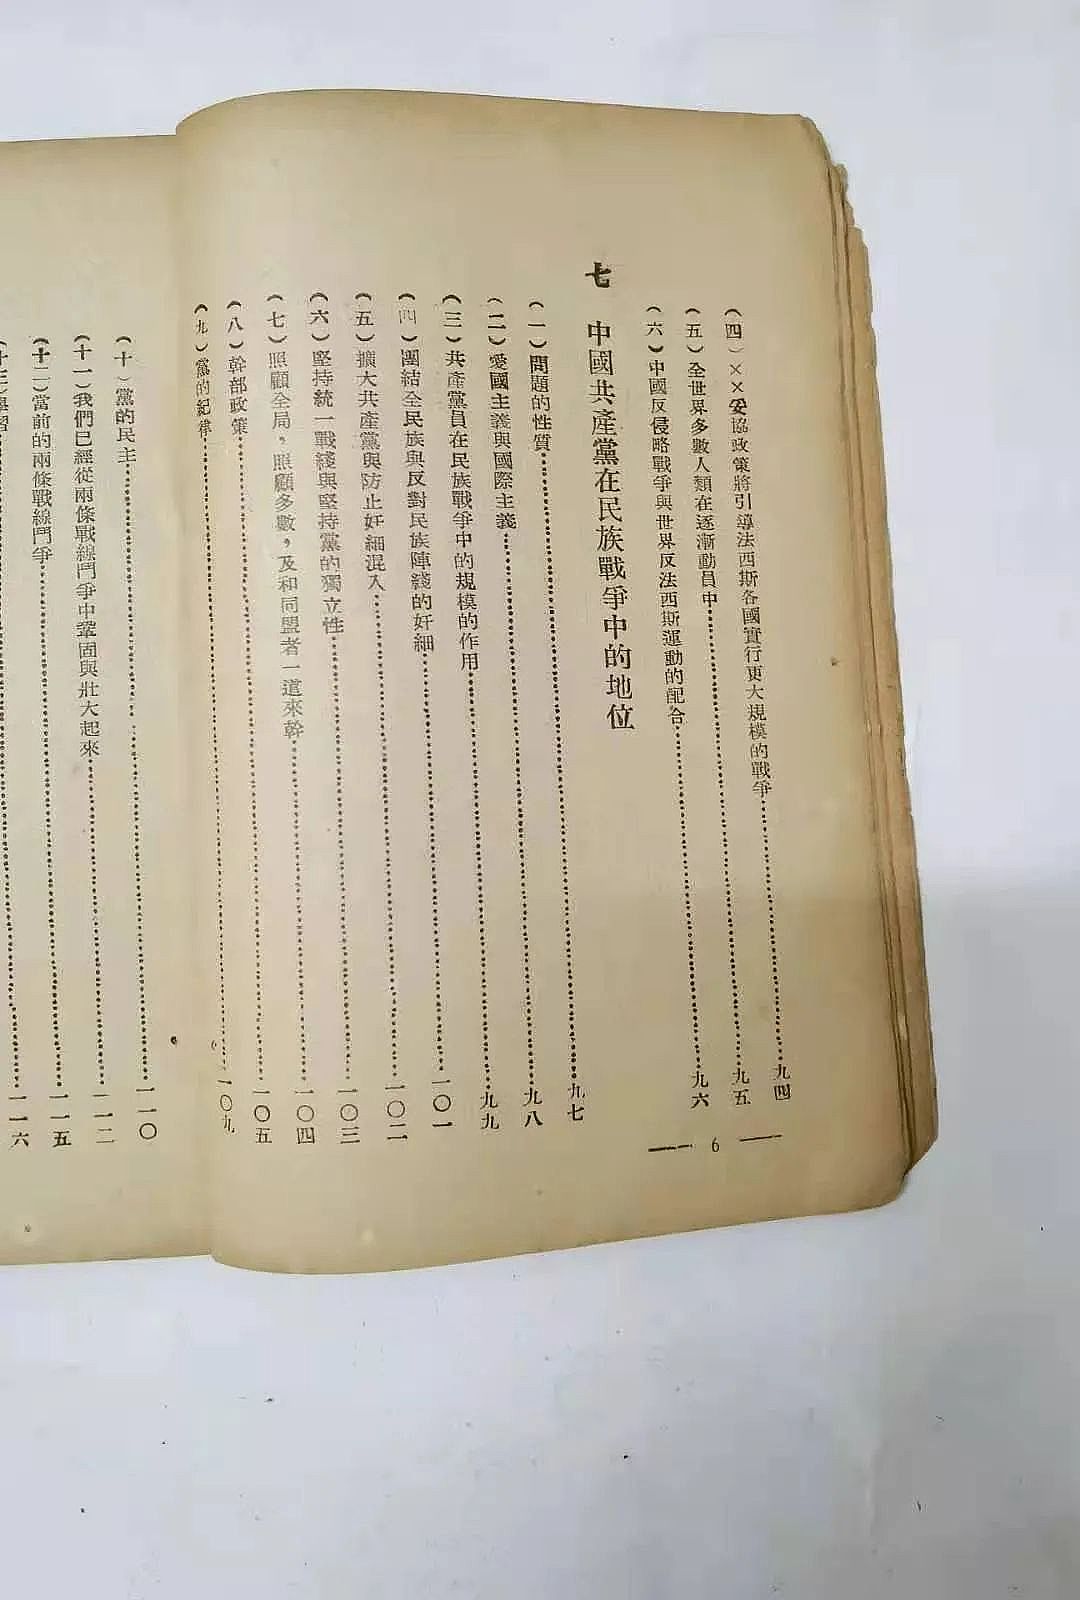 (四)××妥協政策將引導法西斯各國實行更大規模的戰爭……九四
(五)全世界多數人類在逐漸動員中……九五
(六)中國反侵略戰爭與世界反法西斯運動的配合……九六
七 中國共產黨在民族戰爭中的地位
(一)問題的性質……九七
(二)愛國主義與國際主義……九八
(三)共產黨員在民族戰爭中的規模的作用……九九
(四)團結全民族與反對民族陣綫的奸細……一〇一
(五)擴大共產黨與防止奸細混入……一〇二
(六)堅持統一戰綫與堅持黨的獨立性……一〇三
(七)照顧全局,照顧多數,及和同盟者一道來幹……一〇四
(八)幹部政策……一〇五
(九)黨的紀律……一〇九
— 6 —
(十)黨的民主……一一〇
(十一)我們已經從兩條戰線鬥爭中鞏固與壯大起來……一一二
(十二)當前的兩條戰線鬥爭……一一五
(十三)學習……一一六